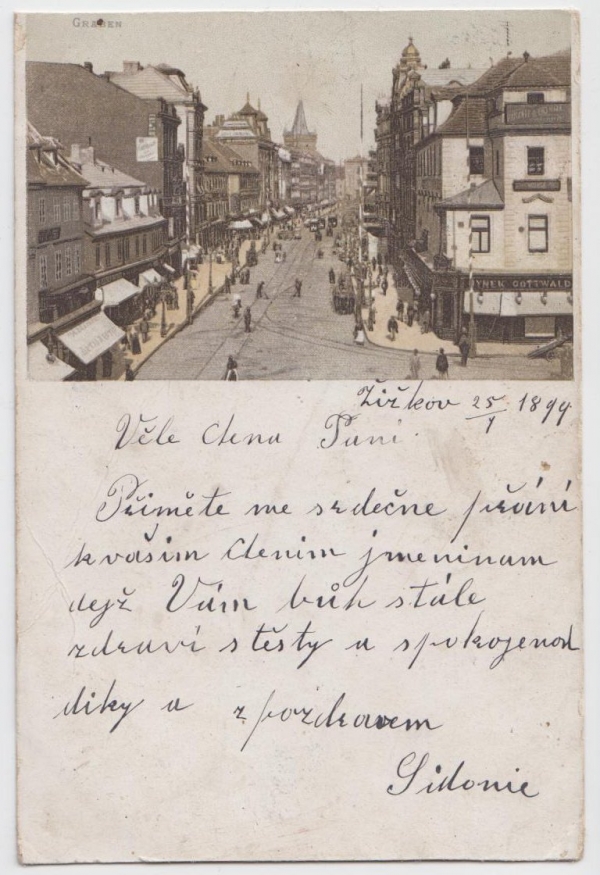 GRABEN
YNEK GOTTWALD
Žižkov 25/1 1899
Věle ctena Paní
Přiměte me srdečne přání
k vašim ctenim jmeninam
dejž Vám bůh stále
zdraví stěsty a spokojenod
diky a z pozdravem
Sidonie